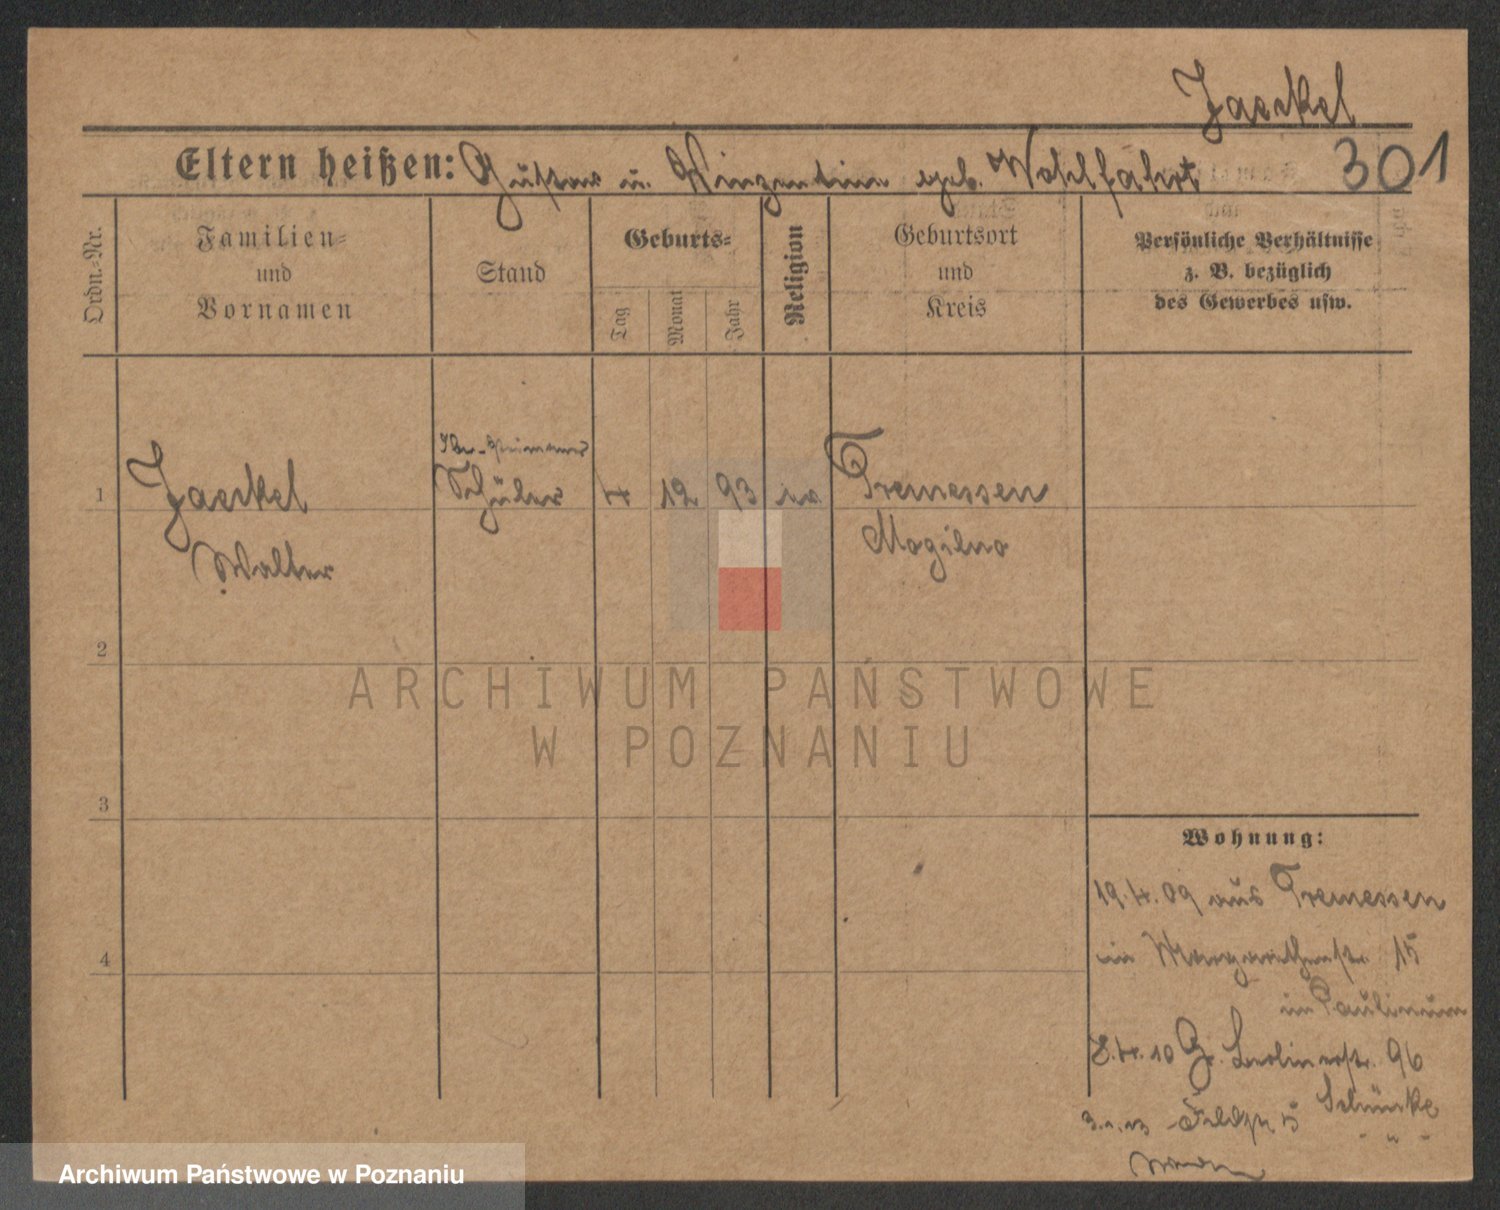 Jaeckel
Eltern heißen: Gustav u. Winzentine geb. Wohlfahrt 301
Ordn.-Nr.
Familien-
und
Vornamen
Stand
Geburts-
Tag
Monat
Jahr
Religion
Geburtsort
und
Kreis
Persönliche Verhältnisse
z. B. bezüglich
des Gewerbes usw.
1 Jaeckel
Walter
Schüler
4 12 93 ev
Tremessen
Mogilno
2
3
4
Wohnung:
19.4.09 aus Tremessen
in Margarethenstr. 15
im Paulinum
8.4.10 Gr. Berlinerstr. 96
Schünke
3.1.13 Feldstr. 5 " "
ARCHIWUM PAŃSTWOWE
W POZNANIU
Archiwum Państwowe w Poznaniu